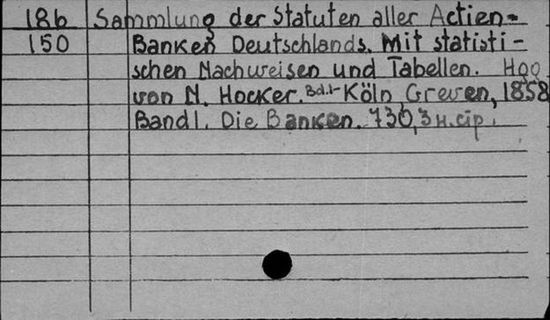 186 Sammlung der Statuten aller Actien-
150 Banken Deutschlands. Mit statisti-
schen Nachweisen und Tabellen. Hgg
von N. Hocker. Bd.1- Köln, Greven, 1858
Band 1. Die Banken. 730, 3 н. стр.